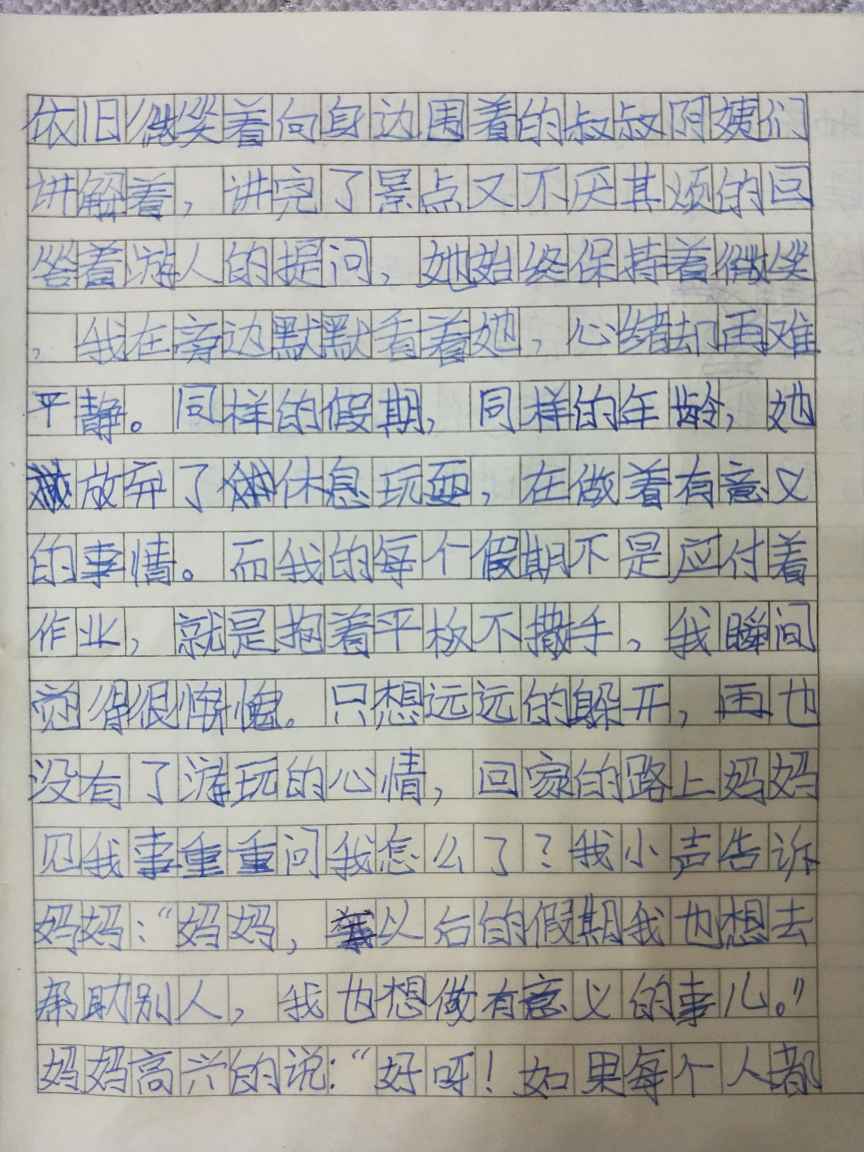 依旧微笑着向身边围着的叔叔阿姨们
讲解着，讲完了景点又不厌其烦的回
答着游人的提问，她始终保持着微笑
，我在旁边默默看着她，心绪却再难
平静。同样的假期，同样的年龄，她
放弃了休息玩耍，在做着有意义
的事情。而我的每个假期不是应付着
作业，就是抱着平板不撒手。我瞬间
觉得很惭愧。只想远远的躲开，再也
没有了游玩的心情，回家的路上妈妈
见我事重重问我怎么了？我小声告诉
妈妈：“妈妈，以后的假期我也想去
帮助别人，我也想做有意义的事儿。”
妈妈高兴的说：“好呀！如果每个人都